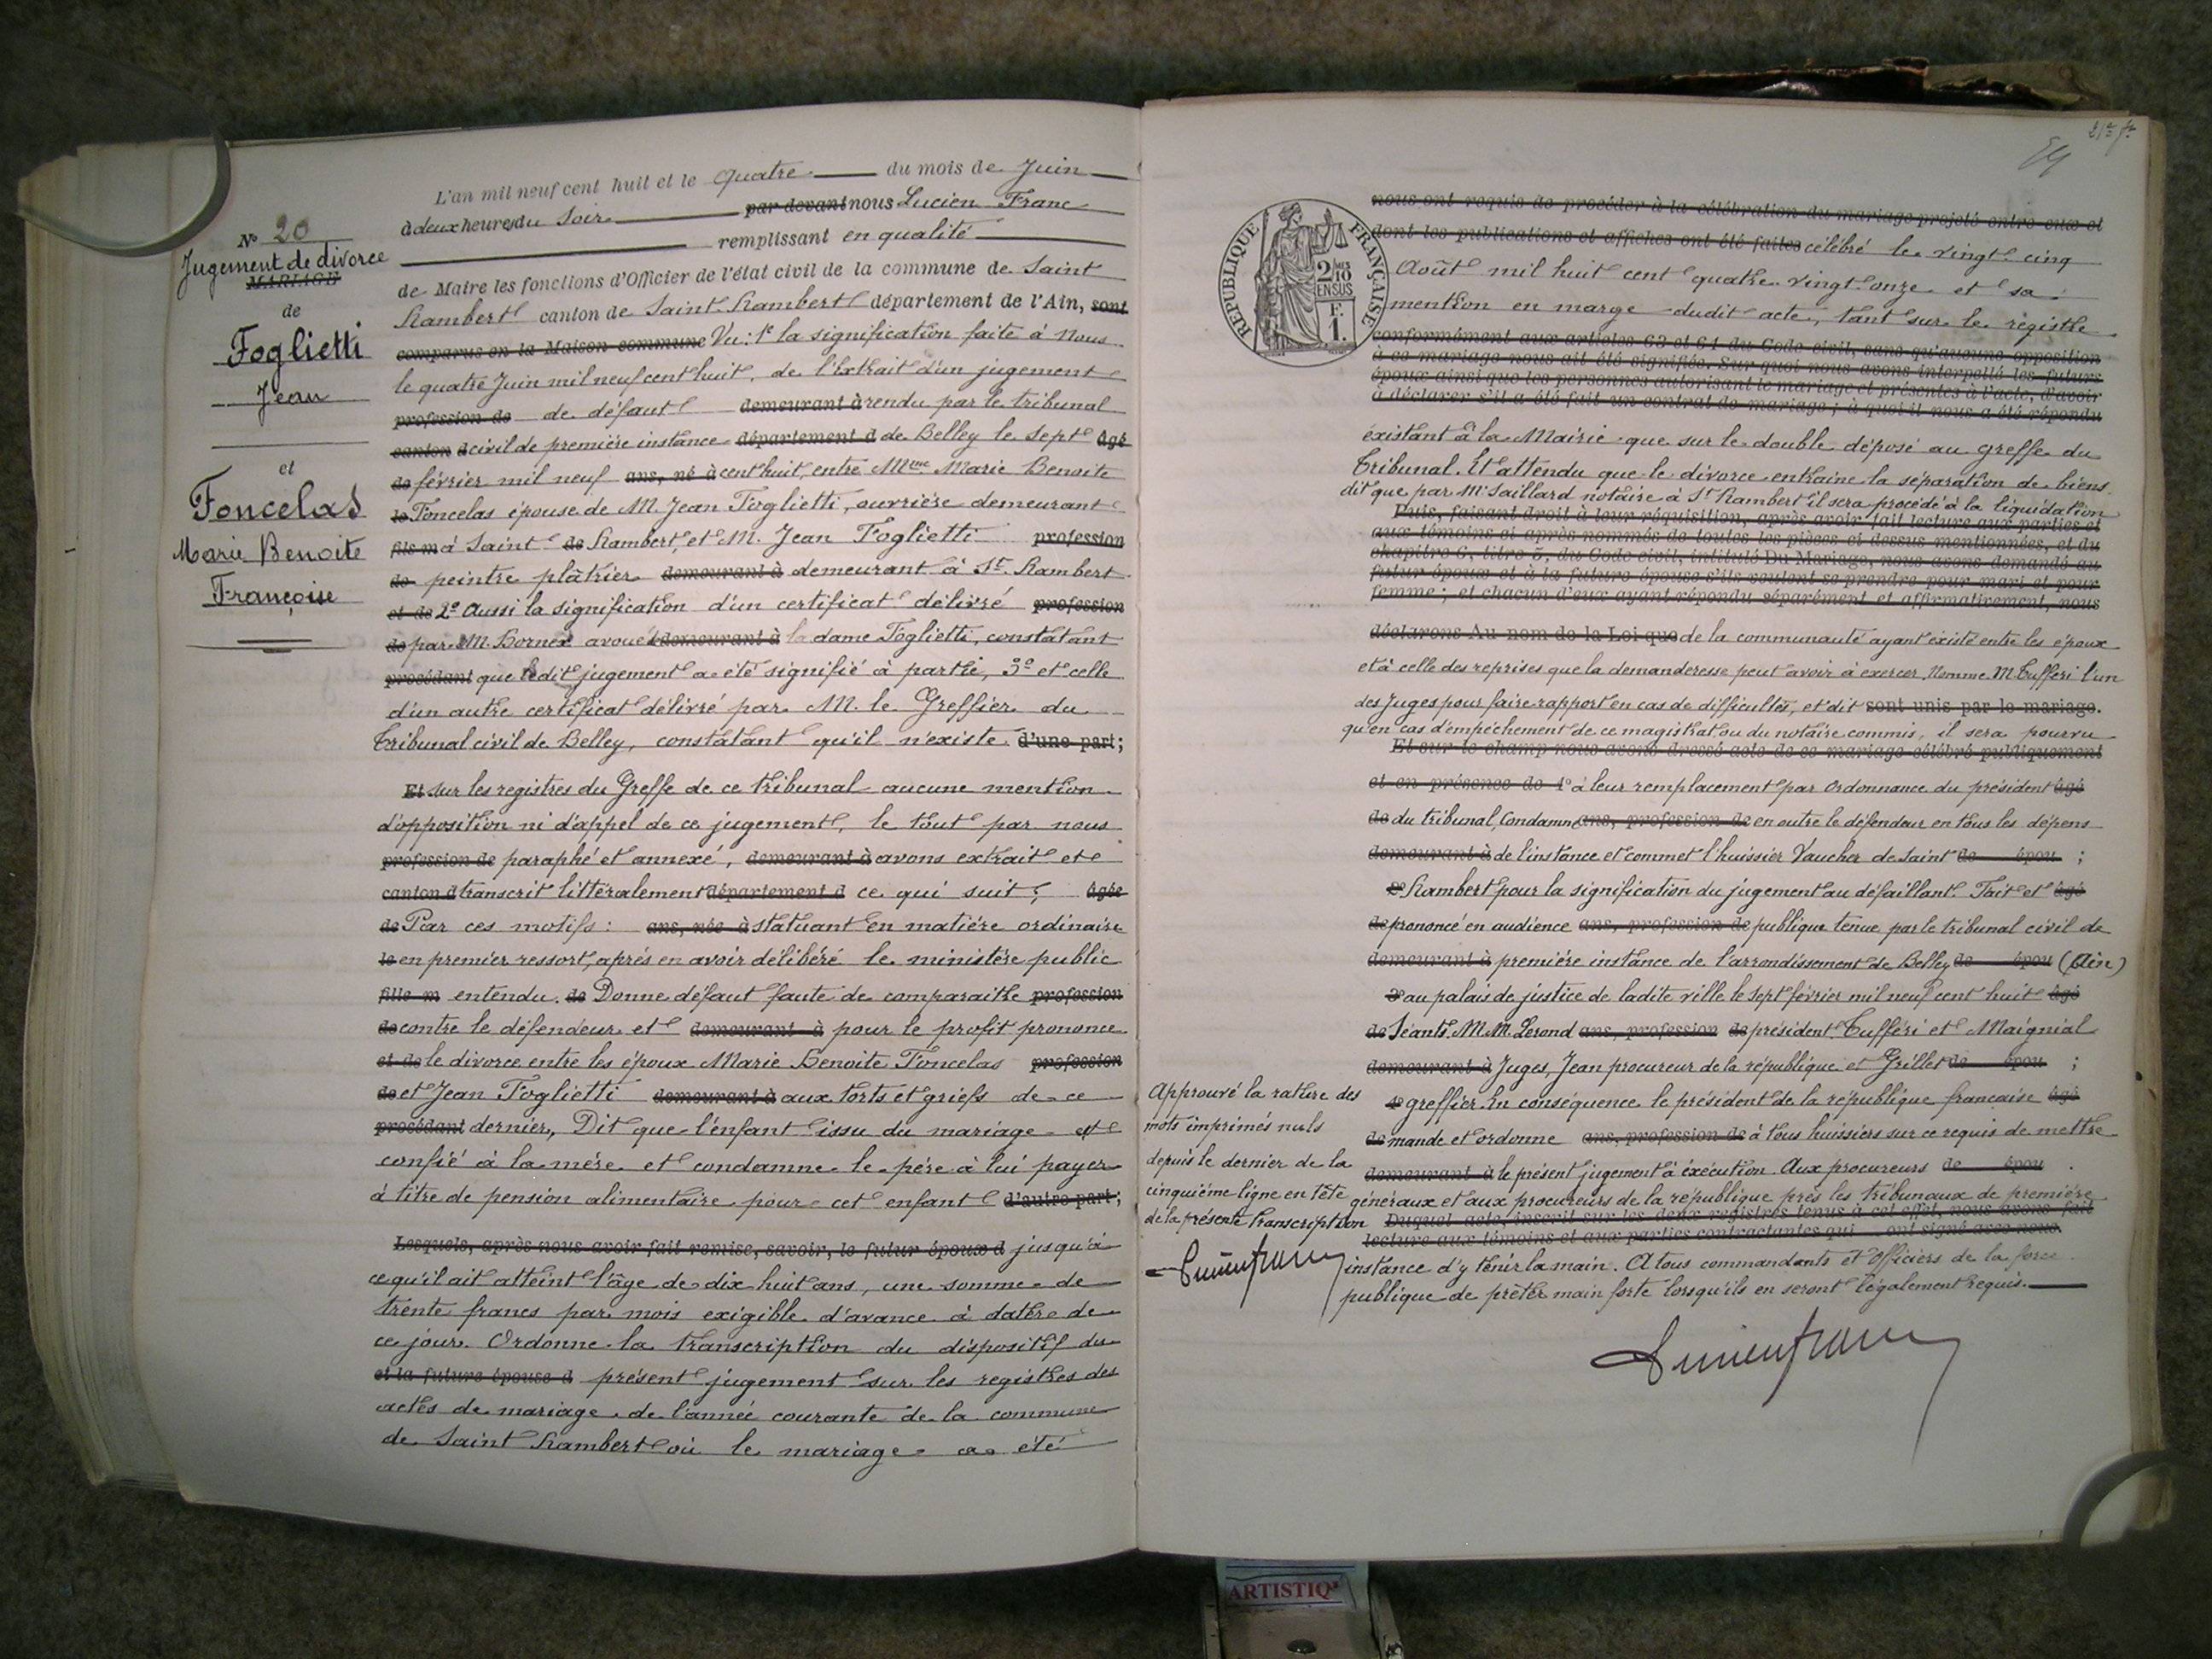 N° 20
Jugement de divorce
MARIAGE
de
Foglietti
Jean
et
Foncelas
Marie Benoite
Françoise
L'an mil neuf cent huit et le Quatre du mois de Juin
à deux heures du Soir par devant nous Lucien Franc
remplissant en qualité
de Maire les fonctions d'Officier de l'état civil de la commune de Saint
Rambert canton de Saint-Rambert département de l'Ain, sont
comparus en la Maison commune Vu: 1° la signification faite à Nous
le quatre Juin mil neuf cent huit, de l'Extrait d'un jugement
profession de de défaut demeurant à rendu par le tribunal
canton d civil de première instance département d de Belley le Sept âgé
de février mil neuf ans, né à cent huit, entre Mme Marie Benoite
le Foncelas épouse de M. Jean Foglietti, ouvrière demeurant
fils m à Saint de Rambert, et M. Jean Foglietti profession
de peintre plâtrier demeurant à demeurant à St. Rambert
et de 2° Aussi la signification d'un certificat délivré profession
de par M. Bornex avoué demeurant à la dame Foglietti, constatant
procédant que ledit jugement a été signifié à partie, 3° et celle
d'un autre certificat délivré par M. le Greffier du
Tribunal civil de Belley, constatant qu'il n'existe d'une part;
Et sur les registres du Greffe de ce tribunal aucune mention
d'opposition ni d'appel de ce jugement, le tout par nous
profession de paraphé et annexé, demeurant à avons extrait et
canton d transcrit littéralement département d ce qui suit; âgée
de Par ces motifs: ans, née à statuant en matière ordinaire
le en premier ressort, après en avoir délibéré le ministère public
fille m entendu. de Donne défaut faute de comparaitre profession
de contre le défendeur et demeurant à pour le profit prononce
et de le divorce entre les époux Marie Benoite Foncelas profession
de et Jean Foglietti demeurant à aux torts et griefs de ce
procédant dernier, Dit que l'enfant issu du mariage est
confié à la mère et condamne le père à lui payer
à titre de pension alimentaire pour cet enfant d'autre part;
Lesquels, après nous avoir fait remise, savoir, le futur époux d jusqu'à
ce qu'il ait atteint l'âge de dix huit ans, une somme de
trente francs par mois exigible d'avance à datere de
ce jour. Ordonne la transcription du dispositif du
et la future épouse d présent jugement sur les registres des
actes de mariage de l'année courante de la commune
de Saint Rambert où le mariage a été
nous ont requis de procéder à la célébration du mariage projeté entre eux et
dont les publications et affiches ont été faites célébré le vingt cinq
Août mil huit cent quatre vingt onze et sa
mention en marge dudit acte, tant sur le registre
conformément aux articles 63 et 64 du Code civil, sans qu'aucune opposition
à ce mariage nous ait été signifiée. Sur quoi nous avons interpellé les futurs
époux ainsi que les personnes autorisant le mariage et présentes à l'acte, d'avoir
à déclarer s'il a été fait un contrat de mariage; à quoi il nous a été répondu
existant à la Mairie que sur le double déposé au greffe du
Tribunal. Et attendu que le divorce entraine la séparation de biens
dit que par Me Saillard notaire à St Rambert il sera procédé à la liquidation
Puis, faisant droit à leur réquisition, après avoir fait lecture aux parties et
aux témoins ci après nommés de toutes les pièces ci dessus mentionnées, et du
chapitre 6, titre 5, du Code civil, intitulé Du Mariage, nous avons demandé au
futur époux et à la future épouse s'ils veulent se prendre pour mari et pour
femme; et chacun d'eux ayant répondu séparément et affirmativement, nous
déclarons Au nom de la Loi que de la communauté ayant existé entre les époux
et à celle des reprises que la demanderesse peut avoir à exercer. Nomme M. Tufféri l'un
des Juges pour faire rapport en cas de difficultés, et dit sont unis par le mariage.
qu'en cas d'empêchement de ce magistrat ou du notaire commis, il sera pourvu
Et sur le champ nous avons dressé acte de ce mariage célébré publiquement
et en présence de 1° à leur remplacement par ordonnance du président âgé
de du tribunal, Condamne ans, profession de en outre le défendeur en tous les dépens
demeurant à de l'instance et commet l'huissier Vaucher de Saint de épou ;
2° Rambert pour la signification du jugement au défaillant. Fait et âgé
de prononcé en audience ans, profession de publique tenue par le tribunal civil de
demeurant à première instance de l'arrondissement de Belley de épou (Ain)
3° au palais de justice de ladite ville le sept février mil neuf cent huit âgé
de Séants M.M. Lerond ans, profession de président. Tufféri et Maignial
demeurant à Juges, Jean procureur de la république et Grillet de épou ;
4° greffier. En conséquence le président de la république francaise âgé
de mande et ordonne ans, profession de à tous huissiers sur ce requis de mettre
demeurant à le présent jugement à éxécution. Aux procureurs de épou .
généraux et aux procureurs de la république près les tribunaux de première
Duquel acte, inscrit sur les deux registres tenus à cet effet, nous avons fait
lecture aux témoins et aux parties contractantes qui ont signé avec nous.
instance d'y tenir la main. A tous commandants et officiers de la force
publique de prêter main forte lorsqu'ils en seront légalement requis.
Approuvé la rature des
mots imprimés nuls
depuis le dernier de la
cinquième ligne en tête
de la présente transcription
Lucien Franc
Lucien Franc
RÉPUBLIQUE FRANÇAISE
2/10mes
EN SUS
1 F.
ARTISTIQ